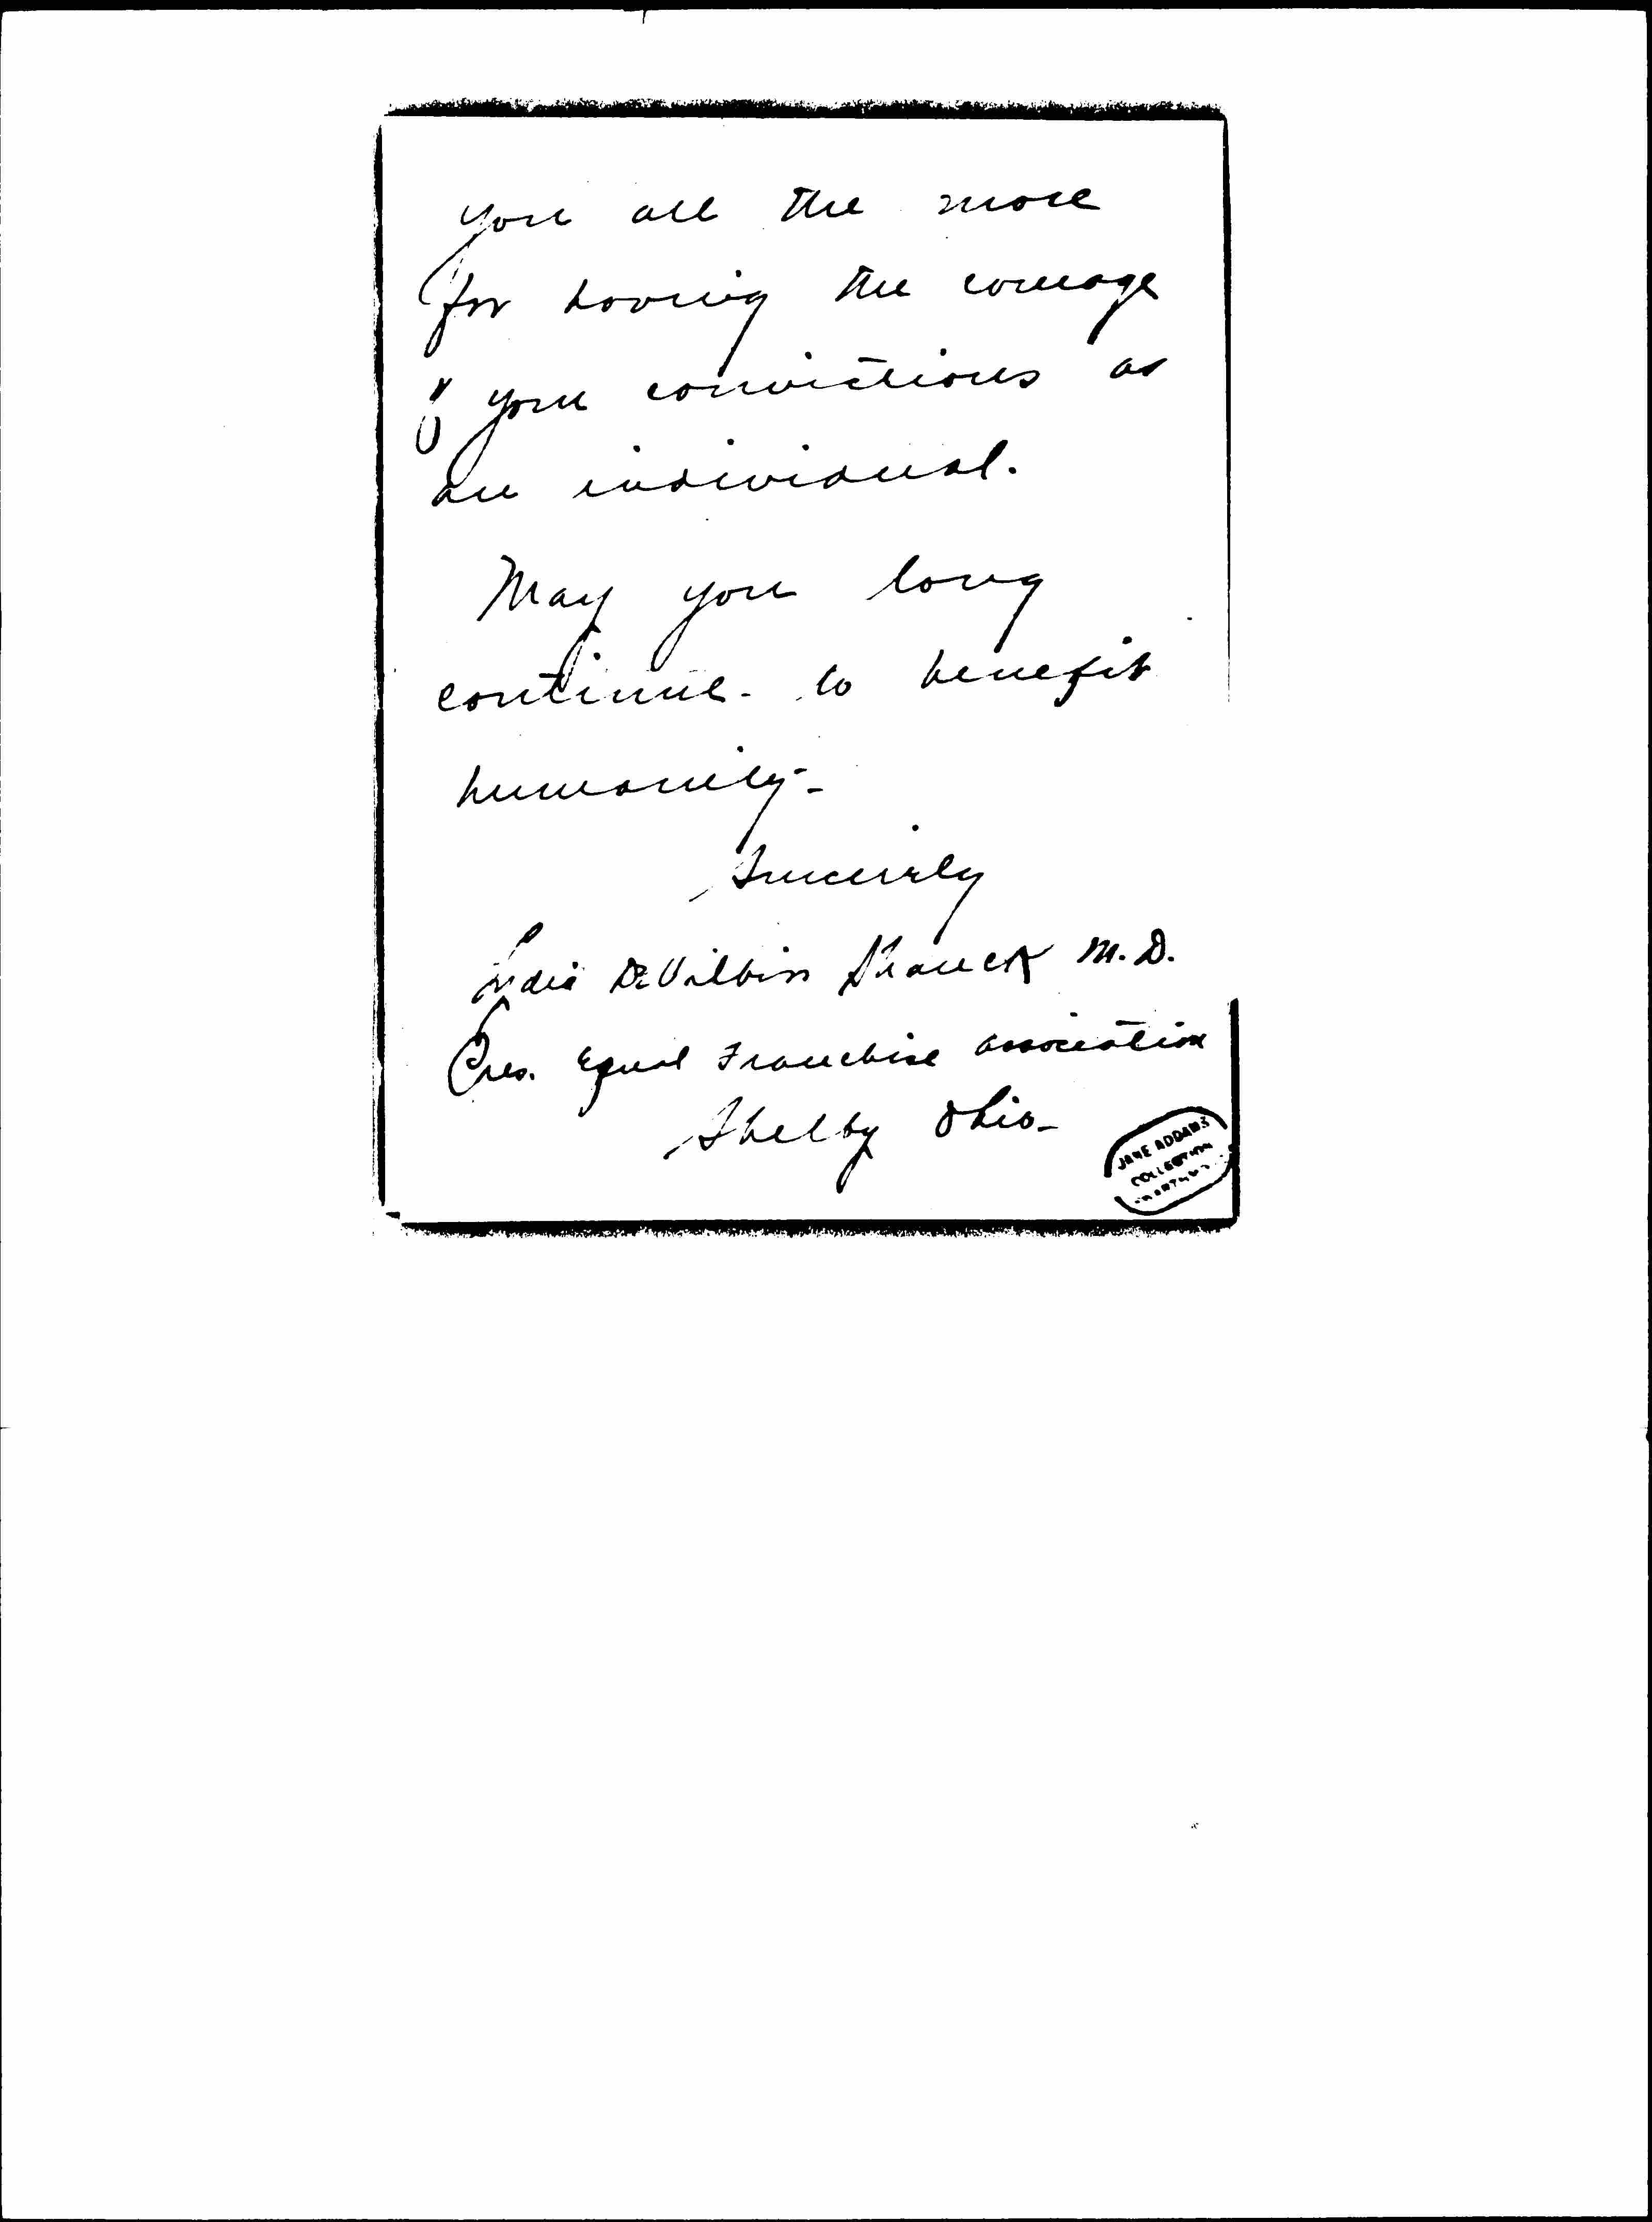 you all the more
for having the courage
of your convictions as
an individual.
May you long
continue - to benefit
humanity -
Sincerely
Lydia DeVilbiss Shauck M.D.
Pres. Equal Franchise Association
Shelby Ohio -
JANE ADDAMS
COLLECTION